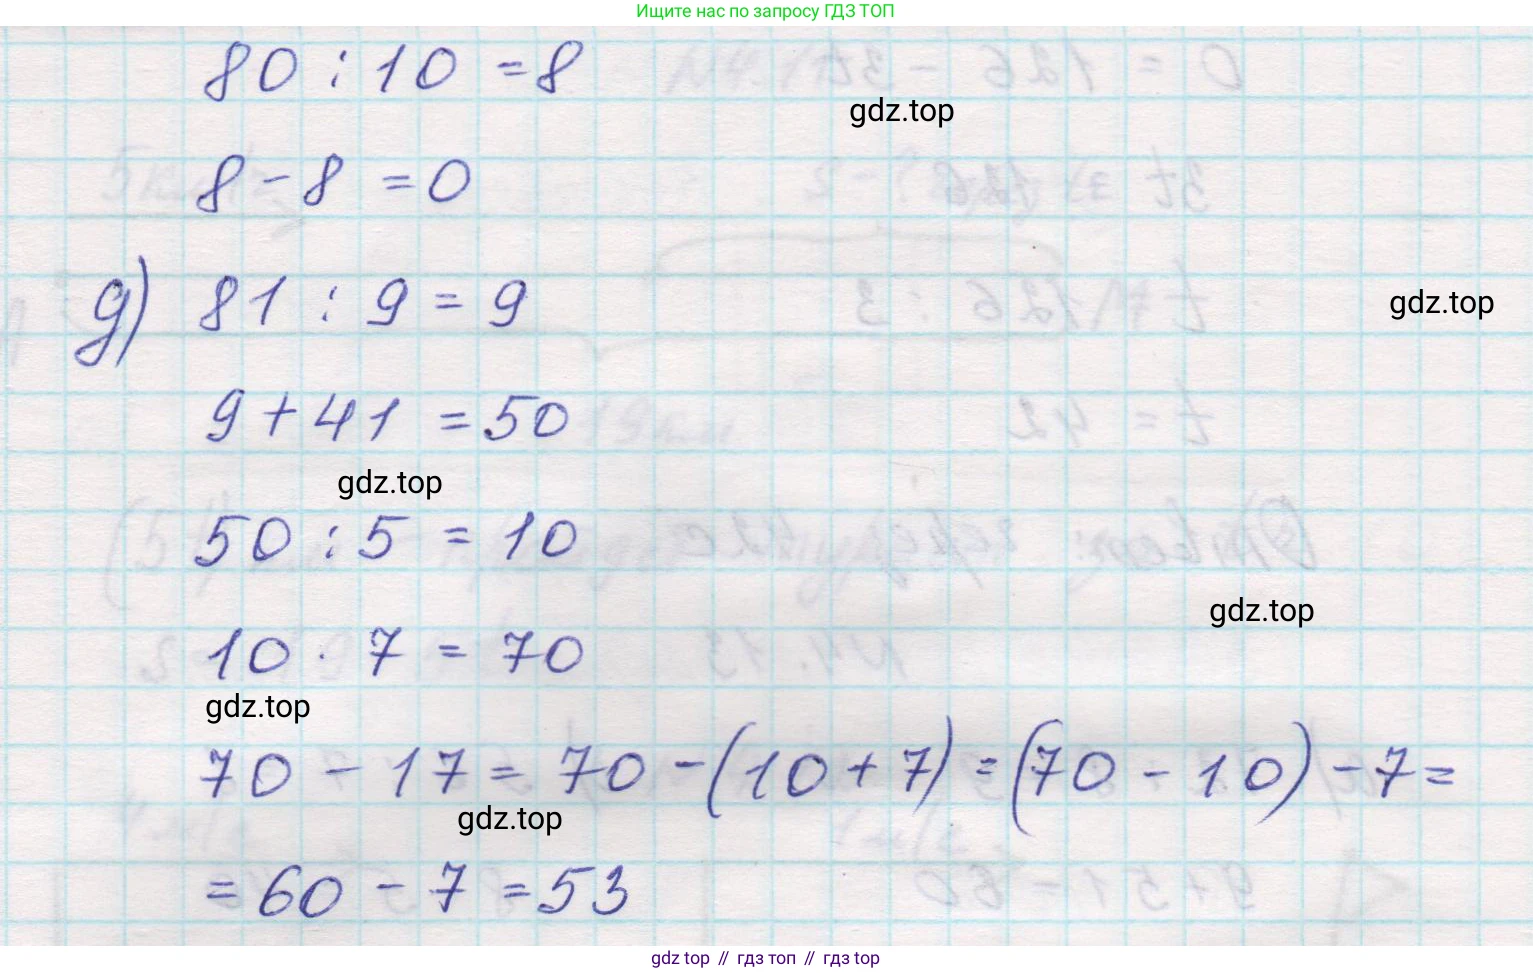 Ищите нас по запросу ГДЗ ТОП
80 : 10 = 8
gdz.top
8 - 8 = 0
д) 81 : 9 = 9
gdz.top
9 + 41 = 50
gdz.top
50 : 5 = 10
gdz.top
10 · 7 = 70
gdz.top
70 - 17 = 70 - (10 + 7) = (70 - 10) - 7 =
gdz.top
= 60 - 7 = 53
gdz.top // гдз топ // гдз top